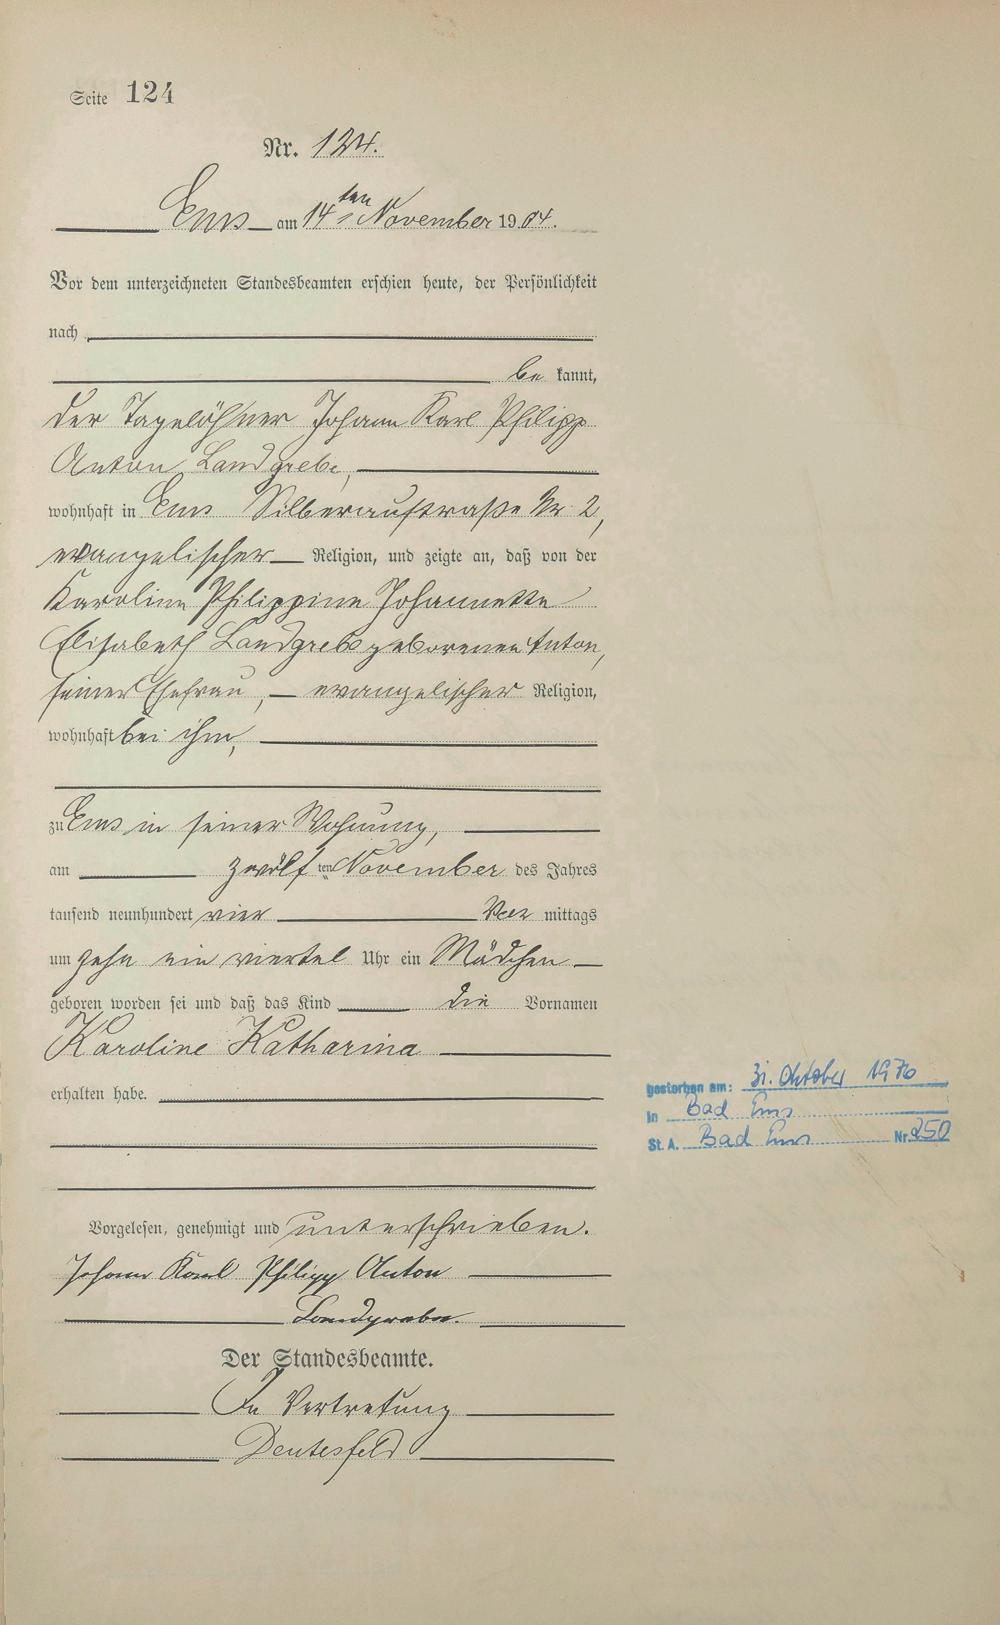 Seite 124
Nr. 124.
Ems am 14ten November 1904.
Vor dem unterzeichneten Standesbeamten erschien heute, der Persönlichkeit
nach
be kannt,
der Tagelöhner Johann Karl Philipp
Anton Landgrebe,
wohnhaft in Ems Silberaustraße Nr 2,
evangelischer Religion, und zeigte an, daß von der
Karoline Philippine Johannette
Elisabeth Landgrebe geborenen Anton,
seiner Ehefrau, evangelischer Religion,
wohnhaft bei ihm,
zu Ems in seiner Wohnung,
am zwölf ten November des Jahres
tausend neunhundert vier Vor mittags
um zehn ein viertel Uhr ein Mädchen
geboren worden sei und daß das Kind die Vornamen
Karoline Katharina
erhalten habe.
gestorben am: 31. Oktober 1976
in Bad Ems
St. A. Bad Ems Nr. 250
Vorgelesen, genehmigt und unterschrieben.
Johann Karl Philipp Anton
Landgrebe.
Der Standesbeamte.
In Vertretung